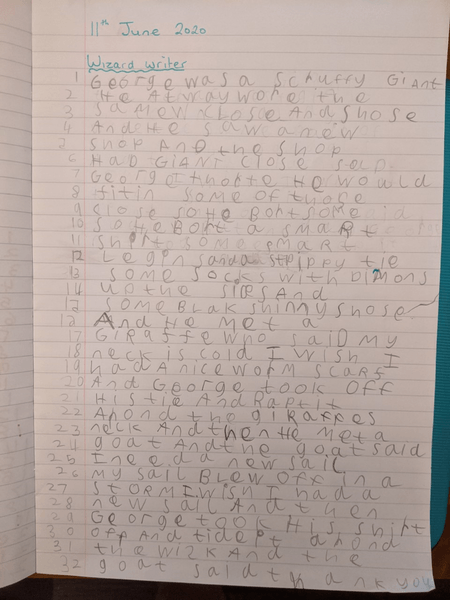 11th June 2020
Wizard writer
1 George was a Scruffy GIANT
2 He Alway wore the
3 Same close And Shose
4 And He saw a new
5 Shop And the Shop
6 HAD GIANT Close
7 George thorte He would
8 fit in some of those
9 Close so He Bort some
10 So He Bort a smart
11 Shirt some smart
12 Legins and a strippy tie
13 some socks with Dimons
14 up the sids And
15 some Blak shinny shose
And He met a
17 Giraffe who said my
18 neck is cold I wish I
19 had A nice worm scarf
20 And George took off
21 His tie And Rapt it
22 Arond the giraffes
23 neck And then He met a
24 goat And the goat said
25 I need a new sail
26 My sail Blew off in a
27 Storm I wish I had a
28 new sail And then
29 George took His shirt
30 off And tide it arond
31 the And the
32 goat said thank you